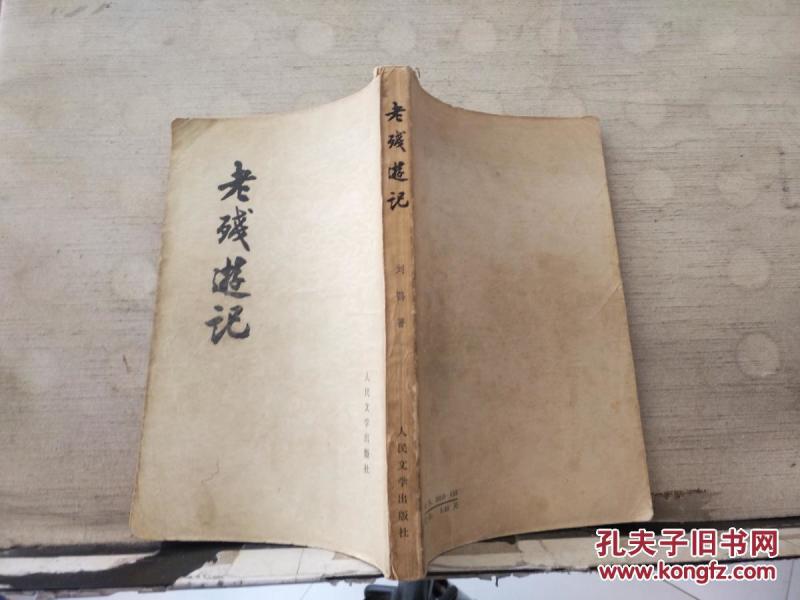 老残遊记
人民文学出版社
老残遊记
刘鹗 著
人民文学出版社
孔夫子旧书网
www.kongfz.com